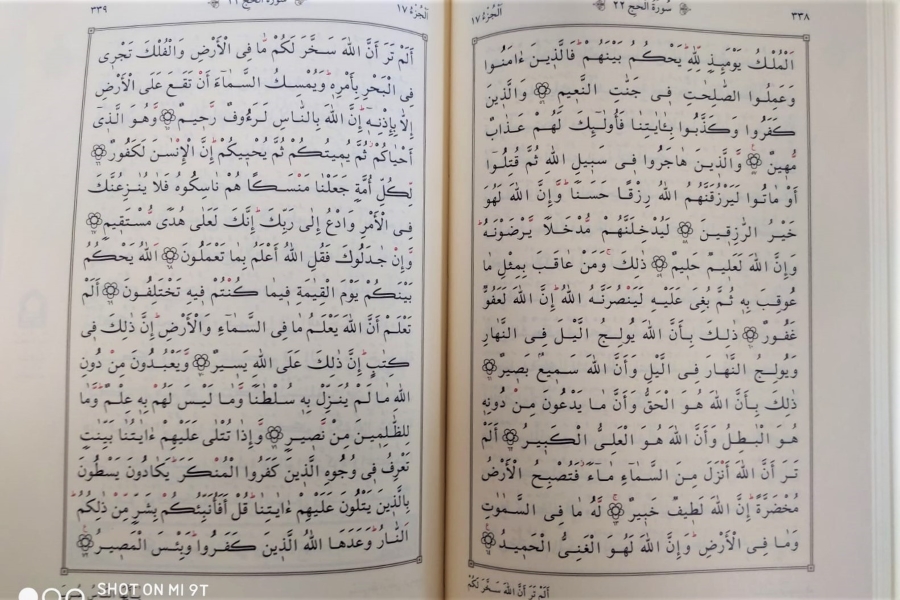 ٣٣٨
سُورَةُ الْحَجِّ ٢٢
اَلْجُزْءُ ١٧
اَلْمُلْكُ يَوْمَئِذٍ لِلّٰهِ يَحْكُمُ بَيْنَهُمْ فَالَّذِينَ ءَامَنُوا
وَعَمِلُوا الصَّٰلِحَٰتِ فِى جَنَّٰتِ النَّعِيمِ ۝ وَالَّذِينَ
كَفَرُوا وَكَذَّبُوا بِـَٔايَٰتِنَا فَأُولَٰٓئِكَ لَهُمْ عَذَابٌ
مُهِينٌ ۝ وَالَّذِينَ هَاجَرُوا فِى سَبِيلِ اللّٰهِ ثُمَّ قُتِلُوا
أَوْ مَاتُوا لَيَرْزُقَنَّهُمُ اللّٰهُ رِزْقًا حَسَنًا وَإِنَّ اللّٰهَ لَهُوَ
خَيْرُ الرَّٰزِقِينَ ۝ لَيُدْخِلَنَّهُمْ مُدْخَلًا يَرْضَوْنَهُ
وَإِنَّ اللّٰهَ لَعَلِيمٌ حَلِيمٌ ۝ ذَٰلِكَ وَمَنْ عَاقَبَ بِمِثْلِ مَا
عُوقِبَ بِهِ ثُمَّ بُغِىَ عَلَيْهِ لَيَنْصُرَنَّهُ اللّٰهُ إِنَّ اللّٰهَ لَعَفُوٌّ
غَفُورٌ ۝ ذَٰلِكَ بِأَنَّ اللّٰهَ يُولِجُ الَّيْلَ فِى النَّهَارِ
وَيُولِجُ النَّهَارَ فِى الَّيْلِ وَأَنَّ اللّٰهَ سَمِيعٌ بَصِيرٌ ۝
ذَٰلِكَ بِأَنَّ اللّٰهَ هُوَ الْحَقُّ وَأَنَّ مَا يَدْعُونَ مِنْ دُونِهِ
هُوَ الْبَٰطِلُ وَأَنَّ اللّٰهَ هُوَ الْعَلِىُّ الْكَبِيرُ ۝ أَلَمْ
تَرَ أَنَّ اللّٰهَ أَنْزَلَ مِنَ السَّمَآءِ مَآءً فَتُصْبِحُ الْأَرْضُ
مُخْضَرَّةً إِنَّ اللّٰهَ لَطِيفٌ خَبِيرٌ ۝ لَهُ مَا فِى السَّمَٰوَٰتِ
وَمَا فِى الْأَرْضِ وَإِنَّ اللّٰهَ لَهُوَ الْغَنِىُّ الْحَمِيدُ ۝
أَلَمْ تَرَ أَنَّ اللّٰهَ سَخَّرَ لَكُمْ
اَلْجُزْءُ ١٧
سُورَةُ الْحَجِّ ٢٢
٣٣٩
أَلَمْ تَرَ أَنَّ اللّٰهَ سَخَّرَ لَكُمْ مَا فِى الْأَرْضِ وَالْفُلْكَ تَجْرِى
فِى الْبَحْرِ بِأَمْرِهِ وَيُمْسِكُ السَّمَآءَ أَنْ تَقَعَ عَلَى الْأَرْضِ
إِلَّا بِإِذْنِهِ إِنَّ اللّٰهَ بِالنَّاسِ لَرَءُوفٌ رَحِيمٌ ۝ وَهُوَ الَّذِى
أَحْيَاكُمْ ثُمَّ يُمِيتُكُمْ ثُمَّ يُحْيِيكُمْ إِنَّ الْإِنْسَٰنَ لَكَفُورٌ ۝
لِكُلِّ أُمَّةٍ جَعَلْنَا مَنْسَكًا هُمْ نَاسِكُوهُ فَلَا يُنَٰزِعُنَّكَ
فِى الْأَمْرِ وَادْعُ إِلَىٰ رَبِّكَ إِنَّكَ لَعَلَىٰ هُدًى مُسْتَقِيمٍ ۝
وَإِنْ جَٰدَلُوكَ فَقُلِ اللّٰهُ أَعْلَمُ بِمَا تَعْمَلُونَ ۝ اَللّٰهُ يَحْكُمُ
بَيْنَكُمْ يَوْمَ الْقِيَٰمَةِ فِيمَا كُنْتُمْ فِيهِ تَخْتَلِفُونَ ۝ أَلَمْ
تَعْلَمْ أَنَّ اللّٰهَ يَعْلَمُ مَا فِى السَّمَآءِ وَالْأَرْضِ إِنَّ ذَٰلِكَ فِى
كِتَٰبٍ إِنَّ ذَٰلِكَ عَلَى اللّٰهِ يَسِيرٌ ۝ وَيَعْبُدُونَ مِنْ دُونِ
اللّٰهِ مَا لَمْ يُنَزِّلْ بِهِ سُلْطَٰنًا وَمَا لَيْسَ لَهُمْ بِهِ عِلْمٌ وَمَا
لِلظَّٰلِمِينَ مِنْ نَصِيرٍ ۝ وَإِذَا تُتْلَىٰ عَلَيْهِمْ ءَايَٰتُنَا بَيِّنَٰتٍ
تَعْرِفُ فِى وُجُوهِ الَّذِينَ كَفَرُوا الْمُنْكَرَ يَكَادُونَ يَسْطُونَ
بِالَّذِينَ يَتْلُونَ عَلَيْهِمْ ءَايَٰتِنَا قُلْ أَفَأُنَبِّئُكُمْ بِشَرٍّ مِنْ ذَٰلِكُمُ
النَّارُ وَعَدَهَا اللّٰهُ الَّذِينَ كَفَرُوا وَبِئْسَ الْمَصِيرُ ۝
SHOT ON MI 9T